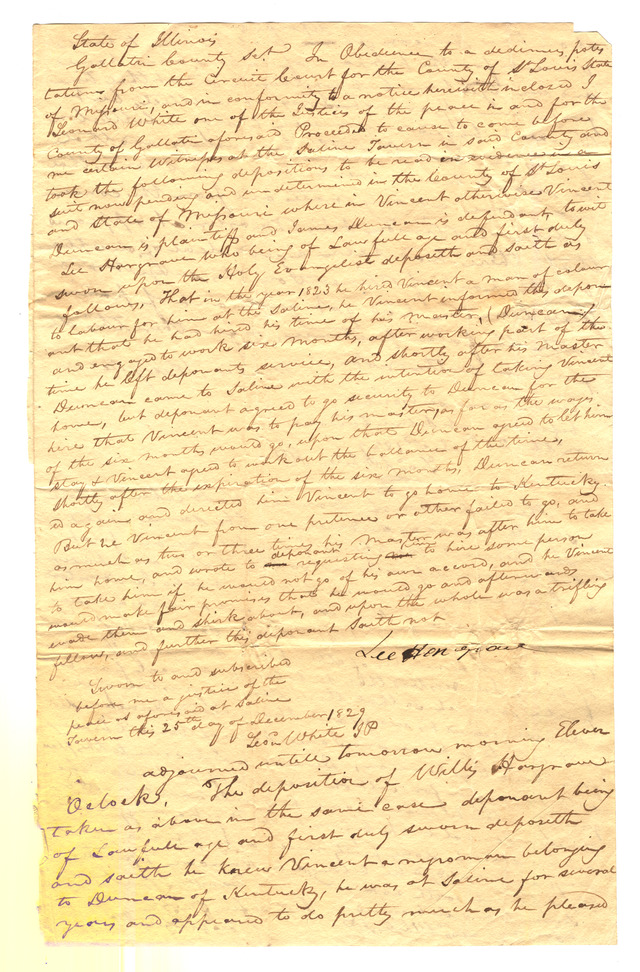 State of Illinois
Gallatin County Sct. In Obedience to a dedimus potes
tatum from the Circuit Court for the County of St Louis State
of Missouri, and in conformity to a notice herewith inclosed I
Leonard White one of the Justices of the peace in and for the
County of Gallatin aforesaid Proceeded to cause to come before
me certain Witnesses at the Saline Tavern in said County and
took the following depositions to be read in evidence in a
suit now pending and undetermined in the County of St Louis
and State of Missouri where in Vincent otherwise Vincent
Duncan is plaintiff and James Duncan is defendant, to wit
Lee Hargrave who being of Lawfull age and first duly
sworn upon the Holy Evangelist deposeth and saith as
follows, That in the year 1823 he hired Vincent a man of colour
to labour for him at the Salines, he Vincent informed this depon
ant that he had hired his time of his master, (Duncan)
and engaged to work six months, after working part of the
time he left deponants service, and shortly after his Master
Duncan came to Saline with the intention of taking Vincent
home, but deponant agreed to go security to Duncan for the
hire that Vincent was to pay his master, as far as the wages
of the six months would go, upon that Duncan agreed to let him
stay & Vincent agreed to work out the ballance of the time,
Shortly after the expiration of the six months, Duncan return
ed again and directed him Vincent to go home to Kentucky.
But he Vincent from one pretence or other failed to go, and
as much as two or three times his Master was after him to take
him home, and wrote to deponant requesting to hire some person
to take him if he would not go of his own accord, and he Vincent
would make fair promises that he would go and afterwards
evade them and shirk about, and upon the whole was a trifling
fellow, and further this deponant Saith not
Lee Hargrave
Sworn to and subscribed
before me a justice of the
peace as aforesaid at Saline
Tavern this 25th day of December 1829
Leod White JP
adjourned untill tomorrow morning Eleven
Oclock. The deposition of Willis Hargrave
taken as above in the same case deponant being
of Lawfull age and first duly sworn deposeth
and saith he knew Vincent a negroman belonging
to Duncan of Kentucky, he was at Saline for several
years and appeared to do pretty much as he pleased